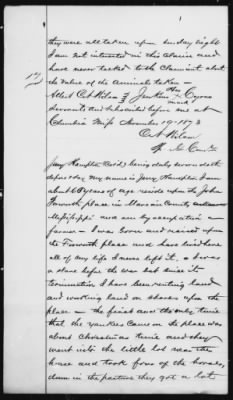 they were all taken upon Sunday night
I am not interested in this claim and
have never talked to the Claimant about
the value of the animals taken —
Attest C A Nelson } Jenkins his Cyrus
mark
Sworn to and subscribed before me at
Columbia Miss November 19 1873
C A Nelson
Sp. Com.
Jerry Hampton Cold being duly sworn doth
depose & say My name is Jerry Hampton I am
about 60 years of age reside upon the John
place in Marion County
Mississippi and am by occupation a
farmer — I was born and raised upon
the place and have lived here
all of my life I never left it. I was
a slave before the war but since its
termination I have been renting land
and working land on shares upon the
place — the first and the only time
that the yankees came on the place was
about Christmas time and they
went into the little lot near the
house and took four of the horses,
down in the pasture they got a lot